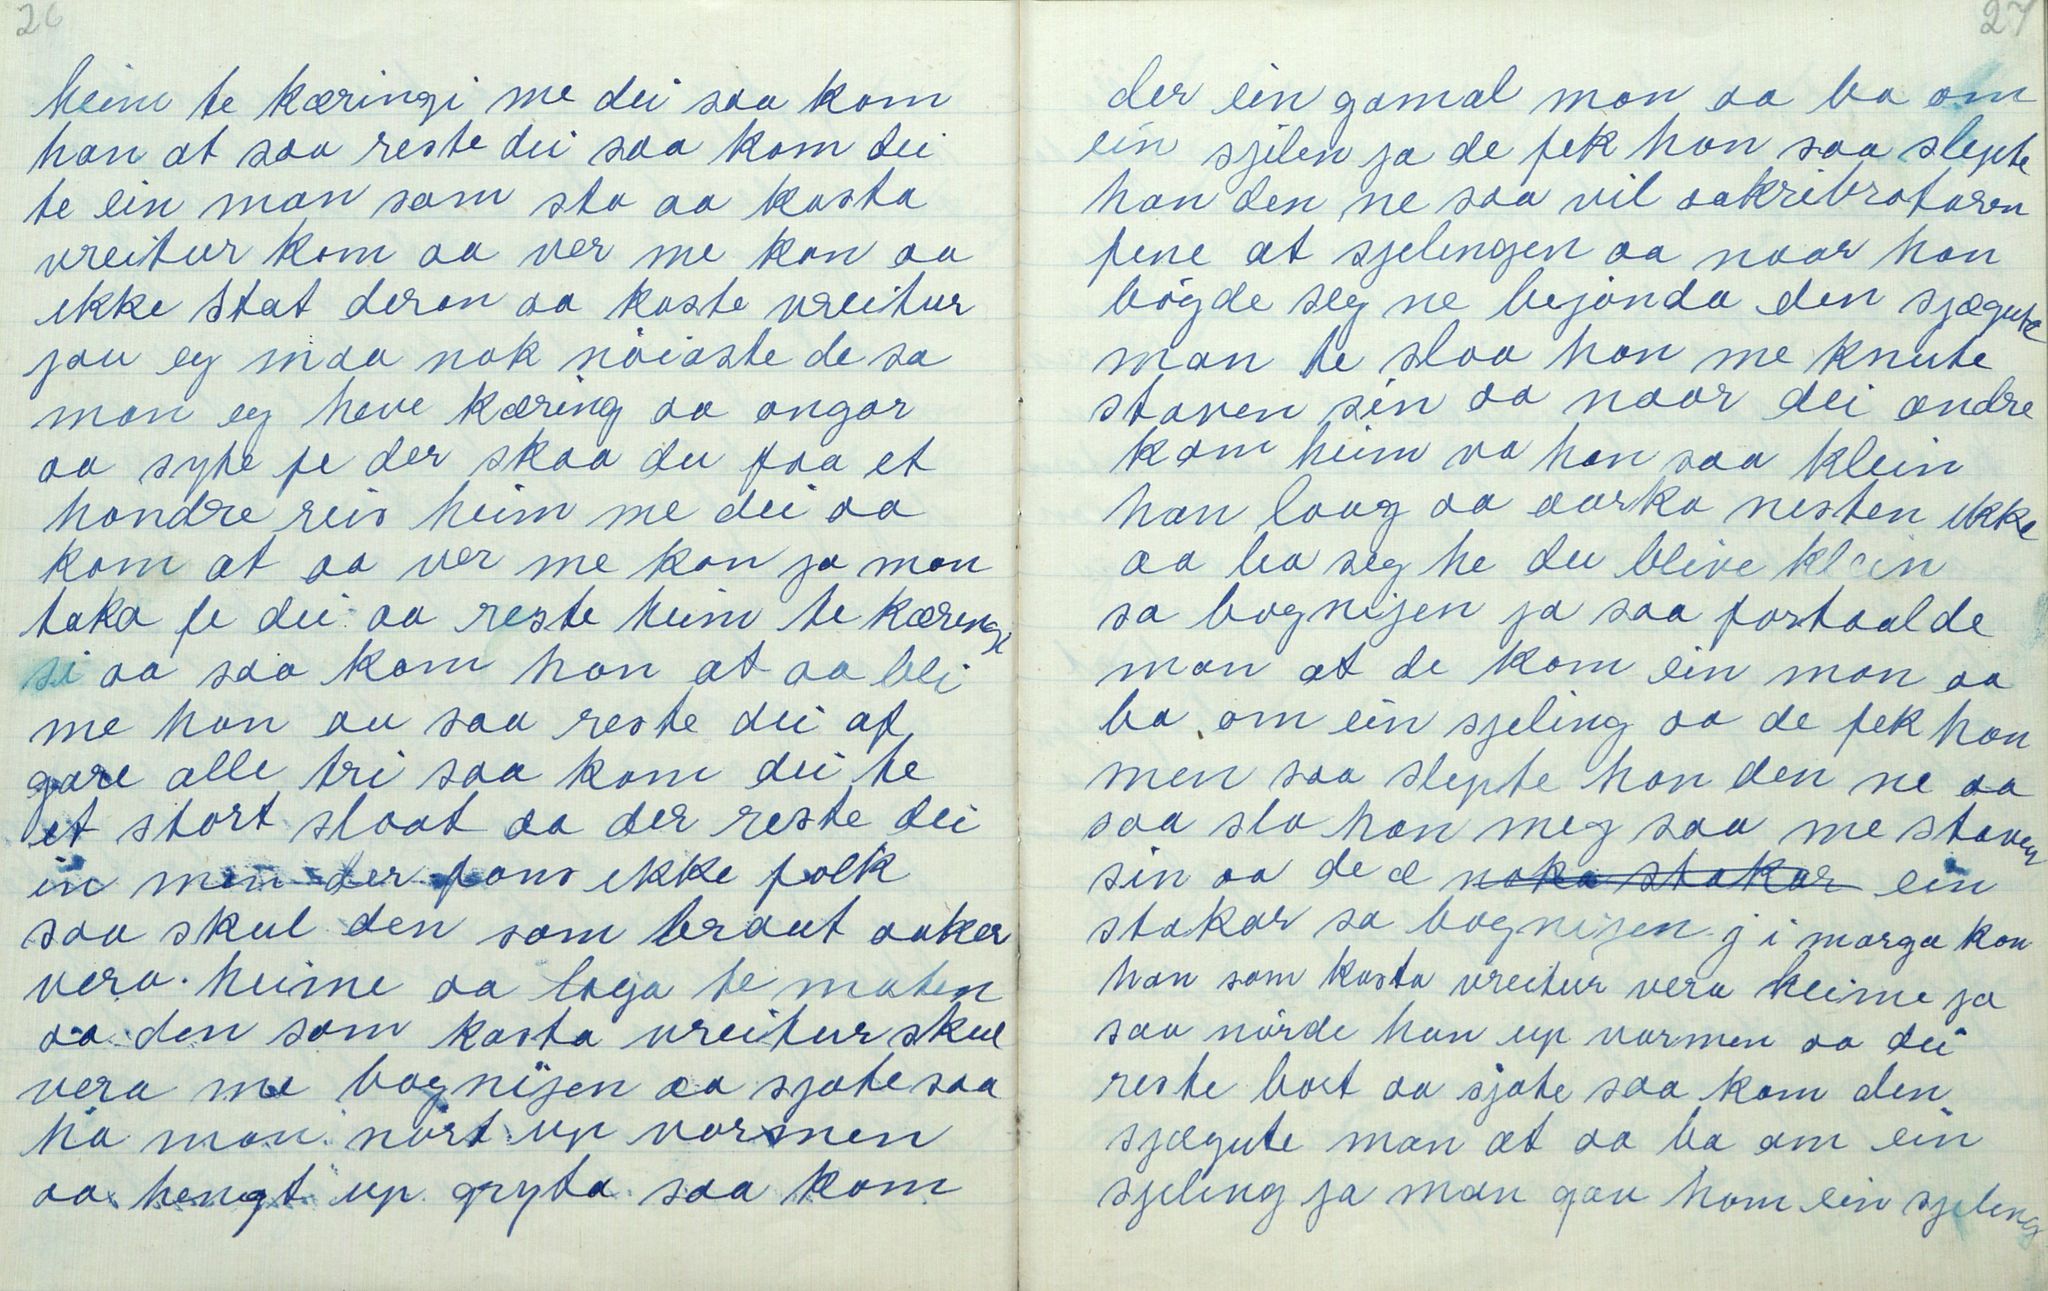 26
heim te kæringi me dei saa kom
han at saa reste dei saa kom dei
te ein man som sto aa kasta
vreitur kom aa ver me kan aa
ikke stat deran aa kaste vreitur
jau eg maa nok nöiaste de sa
man eg heve kæring aa ongar
aa syte fe der skaa du faa et
hondre reis heim me dei aa
kom at aa ver me kan ja man
taka fe dei aa reste heim te kæreng
si aa saa kom han at aa bli
me han au saa reste dei af
gare alle tri saa kom dei te
et stort slaat aa der reste dei
in men der fans ikke folk
saa skul den som braut aaker
vera heime aa laga te maten
aa den som kasta vreitur skul
vera me bagnijen aa sjote saa
ha man nört up varmen
aa hengt up gryta saa kom
27
der ein gamal man aa ba om
ein sjilen ja de fek han saa slepte
han den ne saa vil aakribrotaren
fene at sjelingen aa naar han
bögde seg ne bejonda den sjægute
man te slaa han me knute
staven sin aa naar dei andre
kom heim va han saa klein
han laag aa aarka nesten ikke
aa ba seg he du blive klein
sa bagnijen ja saa fortaalde
man at de kom ein man aa
ba om ein sjeling aa de fek han
men saa slepte han den ne aa
saa slo han meg saa me staven
sin aa de æ noka stakar ein
stakar sa bagnijen j i marga kan
han som kasta vreitur vera heime ja
saa nörde han up varmen aa dei
reste bort aa sjote saa kom den
sjægute man at aa ba om ein
sjeling ja man gav hom ein sjeleng